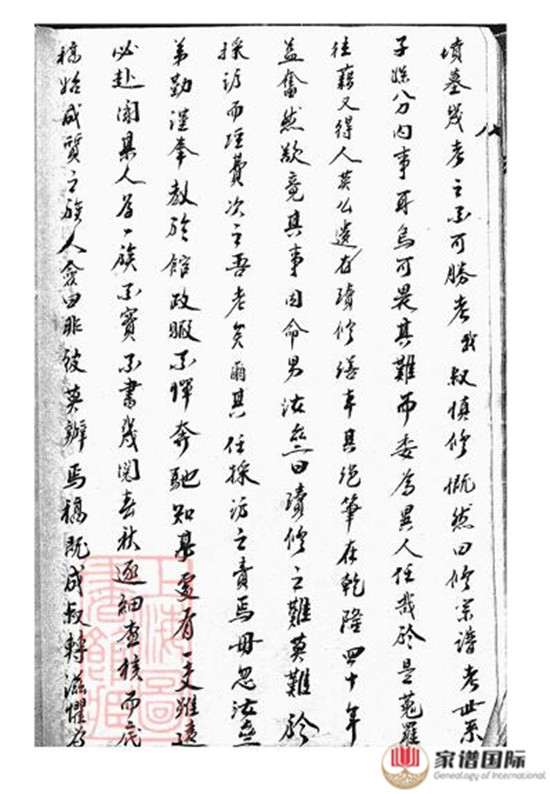 墳墓幾考之不可勝考我叔慎修慨然曰修宗譜考世系
子孫分內事耳烏可畏其難而委為異人任哉於是蒐羅
往藉又得人英公遺存續修繕本其絕筆在乾隆四十年
益奮然欲竟其事因命男汝燕曰續修之難莫難於
採訪而經費次之吾老矣爾其任採訪之責焉毋忽汝燕
弟勤謹奉教於館政暇不憚奔馳知某處有一支雖遠
必赴聞某人為一族不實不書幾閱春秋逐細查核而底
稿始成質之族人僉曰非彼莫辦焉稿既成叔轉滋懼為
八
上海圖書館
家谱国际
Genealogy of International